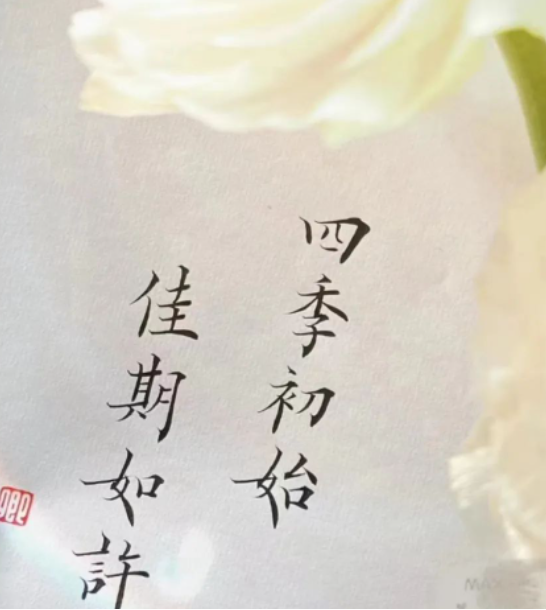 四季初始
佳期如許